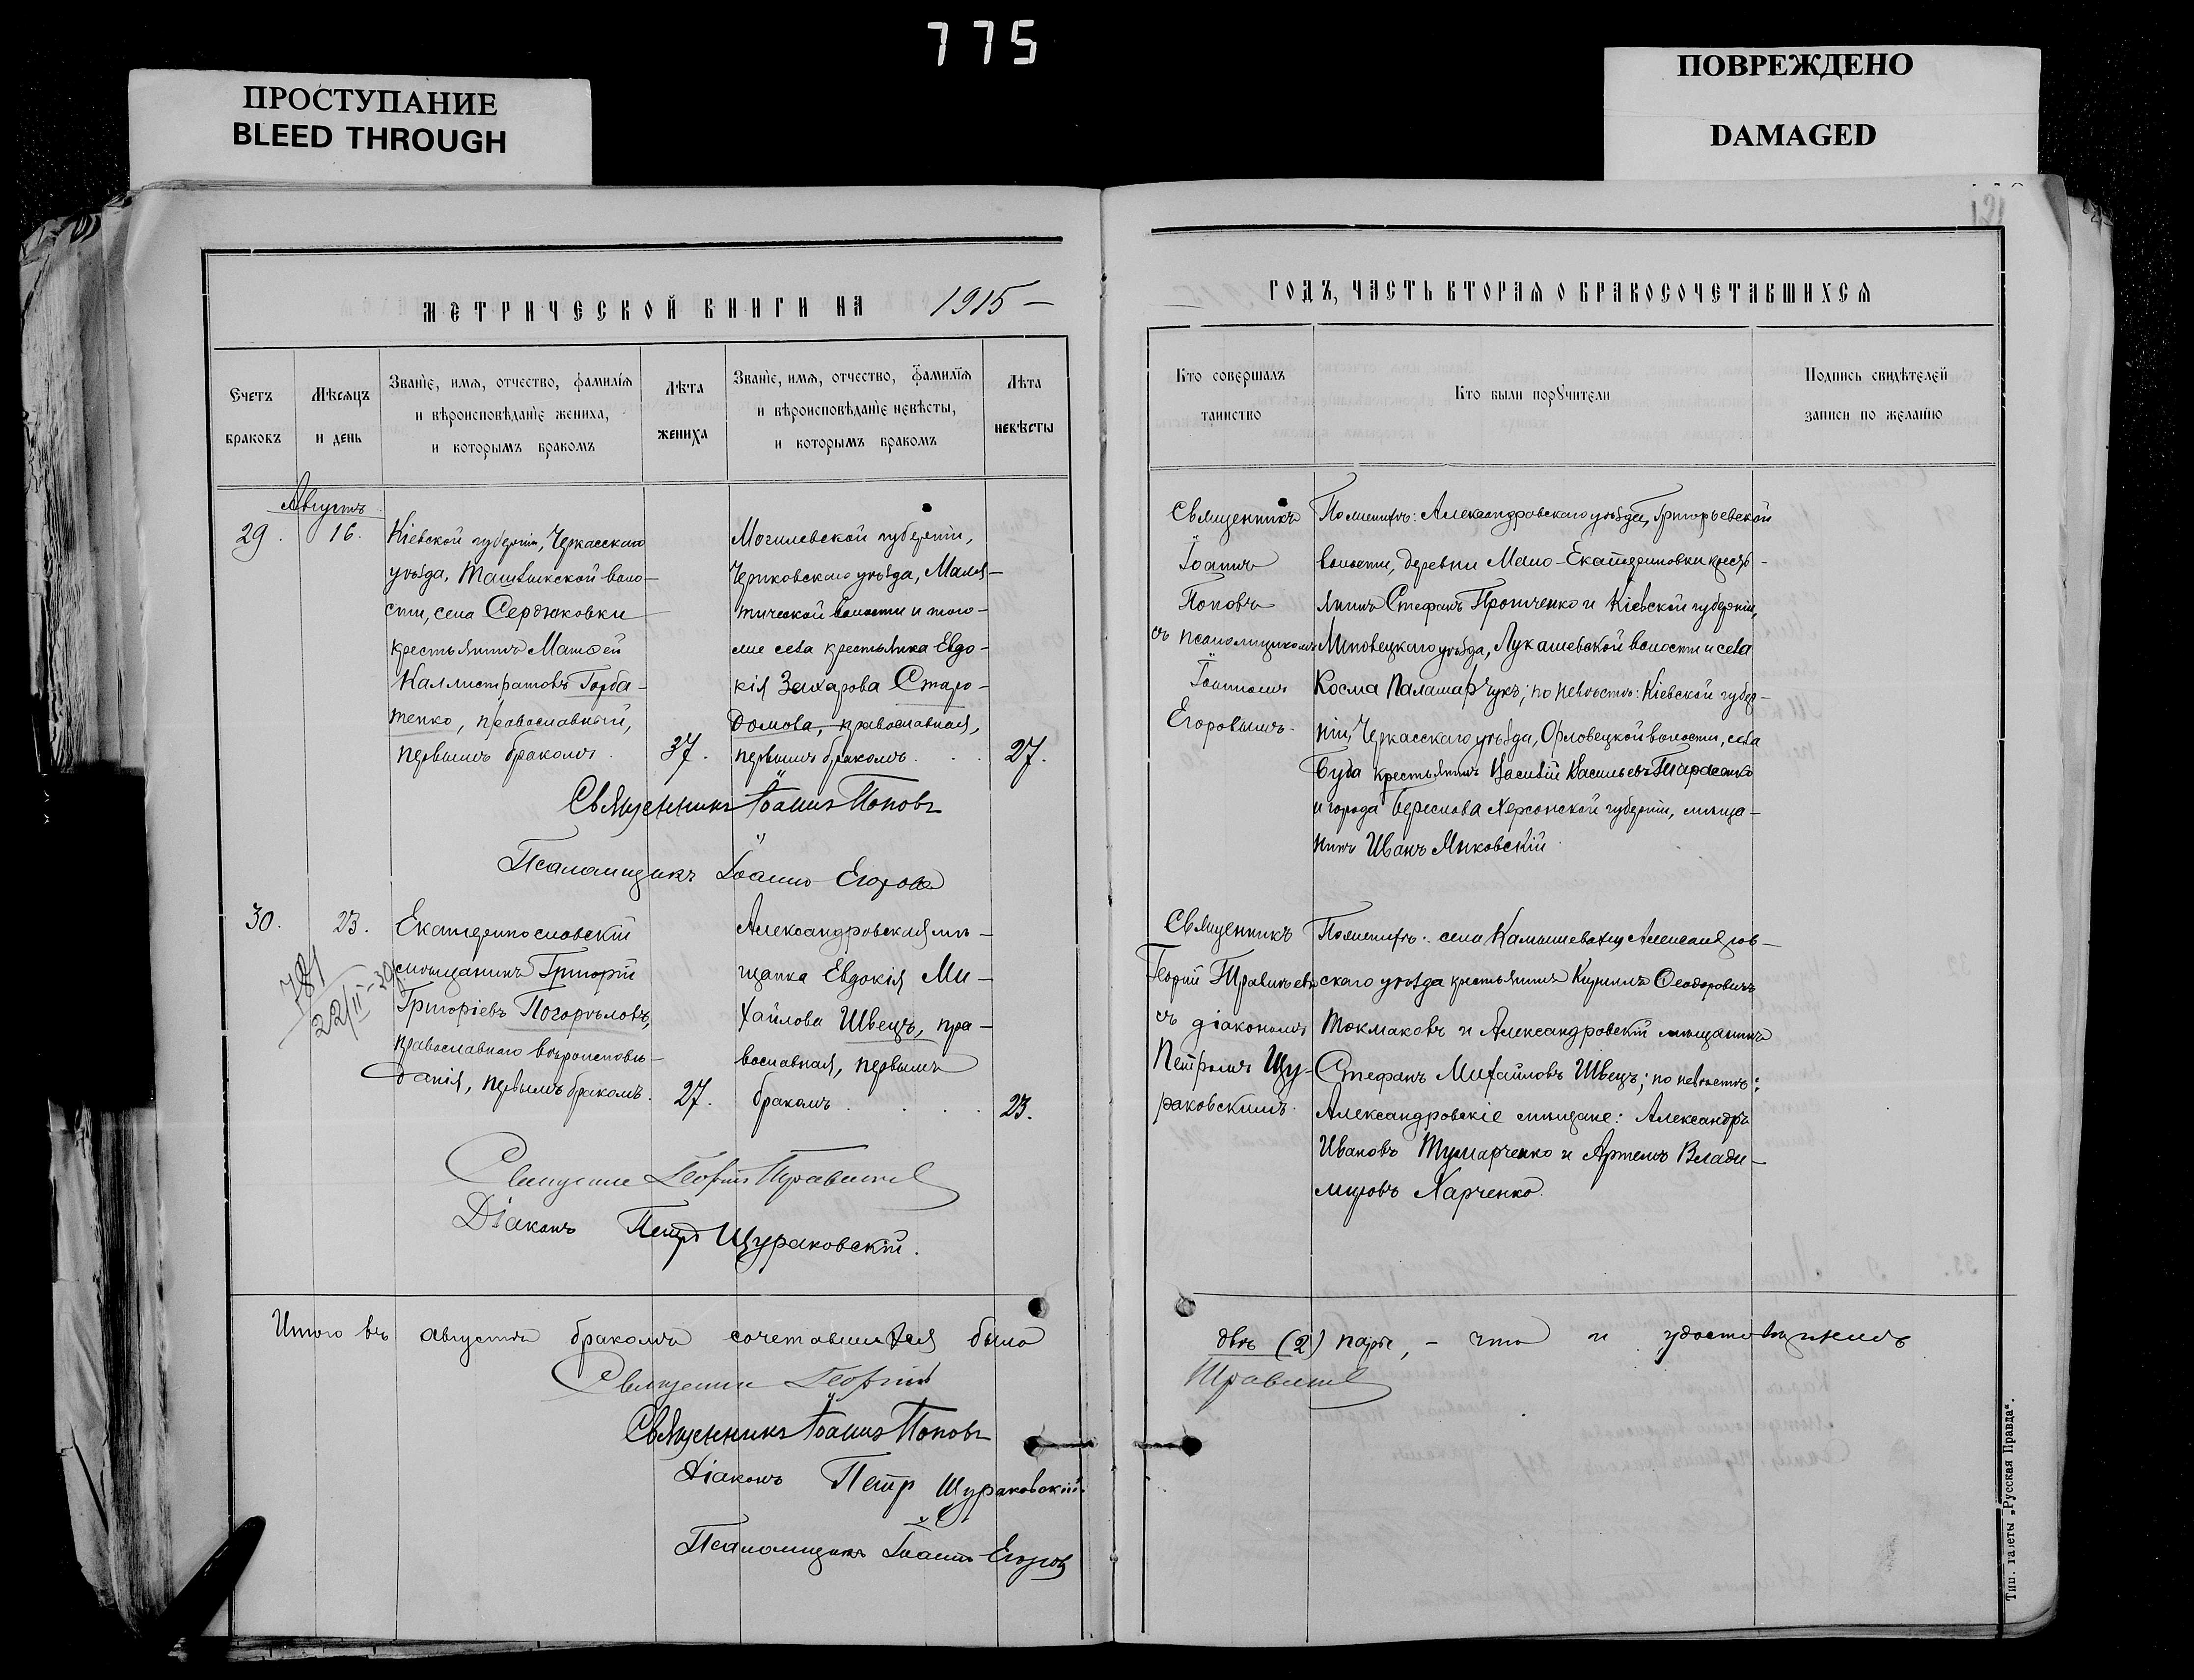 775
ПРОСТУПАНИЕ
BLEED THROUGH
ПОВРЕЖДЕНО
DAMAGED
121
МЕТРИЧЕСКОЙ КНИГИ НА 1915 –
Счетъ браковъ
Мѣсяцъ и день
Званіе, имя, отчество, фамилія
и вѣроисповѣданіе жениха,
и которымъ бракомъ
Лѣта жениха
Званіе, имя, отчество, фамилія
и вѣроисповѣданіе невѣсты,
и которымъ бракомъ
Лѣта невѣсты
Августъ
29. 16.
Кіевской губерніи, Черкасскаго
уѣзда, Ташлыкской воло-
сти, села Сердюковки
крестьянинъ Матѳей
Каллистратовъ Горба-
тенко, православный,
первымъ бракомъ.
37.
Могилевской губерніи,
Чериковскаго уѣзда, Маля-
тической волости и того-
же села крестьянка Евдо-
кія Захарова Старо-
домова, православная,
первымъ бракомъ.
27.
Священникъ Іоаннъ Поповъ
Псаломщикъ Іоаннъ Егоровъ
30. 23.
781
22/II – 39
Екатеринославскій
мѣщанинъ Григорій
Григоріевъ Погорѣловъ,
православнаго вѣроисповѣ-
данія, первымъ бракомъ.
27.
Александровская мѣ-
щанка Евдокія Ми-
хайлова Швецъ, пра-
вославная, первымъ
бракомъ.
23.
Священникъ Георгій Травинъ
Діаконъ Петръ Щураковскій.
Итого въ августѣ бракомъ сочетавшихся было
Священникъ Георгій
Священникъ Іоаннъ Поповъ
Діаконъ Петръ Щураковскій.
Псаломщикъ Іоаннъ Егоровъ
ГОДЪ, ЧАСТЬ ВТОРАЯ О БРАКОСОЧЕТАВШИХСЯ
Кто совершалъ
таинство
Кто были поручители
Подпись свидѣтелей
записи по желанію
Священникъ
Іоаннъ
Поповъ
съ псаломщикомъ
Іоанномъ
Егоровымъ.
По женихѣ: Александровскаго уѣзда, Григорьевской
волости, деревни Мало-Екатериновки кресть-
янинъ Стефанъ Проченко и Кіевской губерніи,
Липовецкаго уѣзда, Лукашевской волости и села
Косма Паламарчукъ; по невѣстѣ: Кіевской губер-
ніи, Черкасскаго уѣзда, Орловецкой волости, села
Буда крестьянинъ Василій Васильевъ Тарасенко
и города Береслова Херсонской губерніи, мѣща-
нинъ Иванъ Янковскій.
Священникъ
съ діакономъ
Петромъ Щу-
раковскимъ.
По женихѣ: села Камышевахи Александров-
скаго уѣзда крестьянинъ Кириллъ Ѳеодоровичъ
Токмаковъ и Александровскій мѣщанинъ
Стефанъ Михайловъ Швецъ; по невѣстѣ:
Александровскіе мѣщане: Александръ
Ивановъ и Артемъ Влади-
міровъ Харченко.
двѣ (2) пары, – что и удостовѣряемъ
Травинъ
Тип. газеты „Русская Правда“.